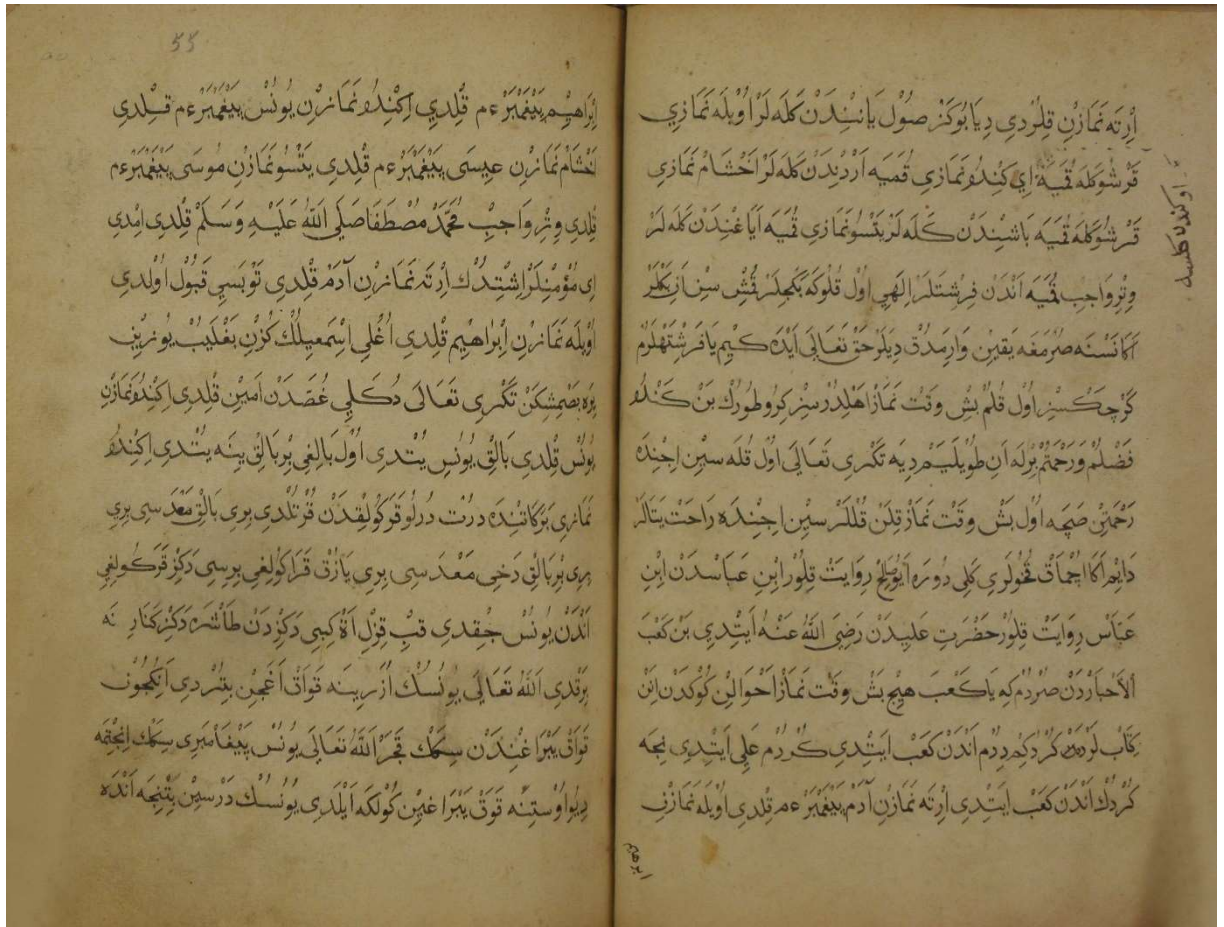 اَرْتَه نَمَازِنْ قِلُرْدِي دِيَا بُوكَزْ صُولْ يَانِنْدَنْ كَلَه لَرْ اُويْلَه نَمَازِي
قَرْشُو كَلَه قُمَيَه اِي كِنْدُ نَمَازِي قُمَيَه اَرْدِنْدَنْ كَلَه لَرْ اَخْشَامْ نَمَازِي
قَرْشُو كَلَه قُمَيَه بَاشِنْدَنْ كَلَه لَرْ يَتْسُو نَمَازِي قُمَيَه اَيَاغِنْدَنْ كَلَه لَرْ
وِتْرِ وَاجِب قُمَيَه اَنْدَنْ فِرِشْتَلَرْ اِلَهِي اُولْ قُلُوكَه
اَكَا نَسْنَه صُرْمَغَه يَقِينْ وَارِمَدُقْ دِيَلَرْ حَقْ تَعَالَى اَيْدَه كِيمْ يَا فَرِشْتَهْلَرُمْ
كَرْچَكْسِزْ اُولْ قُلُمْ بَشْ وَقْتْ نَمَازْ اَهْلِدُرْ سِزْ كِرُو طُورُكْ بَنْ كَنْدُ
فَضْلُمْ وَرَحْمَتُمْ بِرْلَه اَنِ طُويْلَيَمْ دِيَه تَكْرِي تَعَالَى اُولْ قُلَه سِينِ اِچِنْدَه
رَحْمَتِنْ صَچَه اُولْ بَشْ وَقْتْ نَمَازْ قِلَنْ قُلْلَرْ سِينِ اِچِنْدَه رَاحَتْ يَتَالَرْ
دَايِمْ اَكَا اُچْمَاقْ قُخُولَرِي كَلِي دُورَه اَبُو صَالِحْ رِوَايَتْ قِلُورْ اِبْنِ عَبَاسْدَنْ اِبْنِ
عَبَاسْ رِوَايَتْ قِلُورْ حَضْرَتِ عَلِيدَنْ رَضِيَ اللهُ عَنْهُ اَيِتْدِي بَنْ كَعْبَ
الْاَحْبَارْدَنْ صُرْدُمْ كَه يَا كَعْبَ هِيچْ بَشْ وَقْتْ نَمَازْ اَحْوَالِنْ كُوكْدَنْ اِنَنْ
كِتَابْ لَرْدَه كُرْدُكْمِ دِدُمْ اَنْدَنْ كَعْبْ اَيِتْدِي كُرْدُمْ عَلِي اَيِتْدِي نِجَه
كُرْدُكْ اَنْدَنْ كَعْبْ اَيِتْدِي اَرْتَه نَمَازِنْ آدَمْ پَيْغَمْبَرْ ءم قِلْدِي اُويْلَه نَمَازِنْ
ابرهيم
اوكندن كلسه
55
اِبْرَاهِيمْ پَيْغَمْبَرْ ءم قِلْدِي اِكِنْدُ نَمَازِنْ يُونُسْ پَيْغَمْبَرْ ءم قِلْدِي
اَخْشَامْ نَمَازِنْ عِيسَى پَيْغَمْبَرْ ءم قِلْدِي يَتْسُو نَمَازِنْ مُوسَى پَيْغَمْبَرْ ءم
قِلْدِي وِتْرِ وَاجِبْ مُحَمَّدْ مُصْطَفَا صَلَّى اللهُ عَلَيْهِ وَسَلَّمْ قِلْدِي اِمْدِي
اِي مُؤْمِنْلَرْ اِشِتْدُكْ اَرْتَه نَمَازِنْ آدَمْ قِلْدِي تَوْبَسِي قَبُولْ اُولْدِي
اُويْلَه نَمَازِنْ اِبْرَاهِيمْ قِلْدِي اُغْلِي اِسْمَعِيلُكْ كُزْنْ بَغْلَيُبْ يُوزِنِ
يَرَه بَصْمِشِكَنْ تَكْرِي تَعَالَى دُكَلِي غُصَدَنْ اَمِينْ قِلْدِي اِكِنْدُ نَمَازِنْ
يُونُسْ قِلْدِي بَالِقْ يُونُسِ يُتْدِي اُولْ بَالِغِي بِرْ بَالِقْ يِنَه يُتْدِي اِكِنْدُ
نَمَازِي بَرَكَاتِنْدَه دُرْتْ دُرْلُو قَرَكُولِقْدَنْ قُرْتُلْدِي بِرِي بَالِقْ مَعْدَسِي بِرِي
بِرِي بِرْ بَالِقْ دَخِي مَعْدَسِي بِرِي يَازُقْ قَرَاكُولِغِي بِرِسِي دَكِزْ قَرَكُولِغِي
اَنْدَنْ يُونُسْ چِقْدِي قِبْ قِزِلْ اَتْ كِبِي دَكِزْدَنْ طَاشَرَه دَكِزْ كَنَارِنَه
بِرَقْدِي اَللهُ تَعَالَى يُونُسُكْ اُزَرِينَه قَوَاقْ اَغَجِنْ بِتُرْدِي اَنِكِچُونْ
قَوَاقْ يَپْرَاغِنْدَنْ سِكَكْ قَچَرْ اَللهُ تَعَالَى يُونُسْ پَيْغَامْبَرِي سِكَكْ اِنْجِتْمَه
دِيُو اُوسْتِنَه قَوَقْ يَپْرَاغِينْ كُولَكَه اَيْلَدِي يُونُسُكْ دَرْسِينْ بِتِنْجَه اَنْدَه